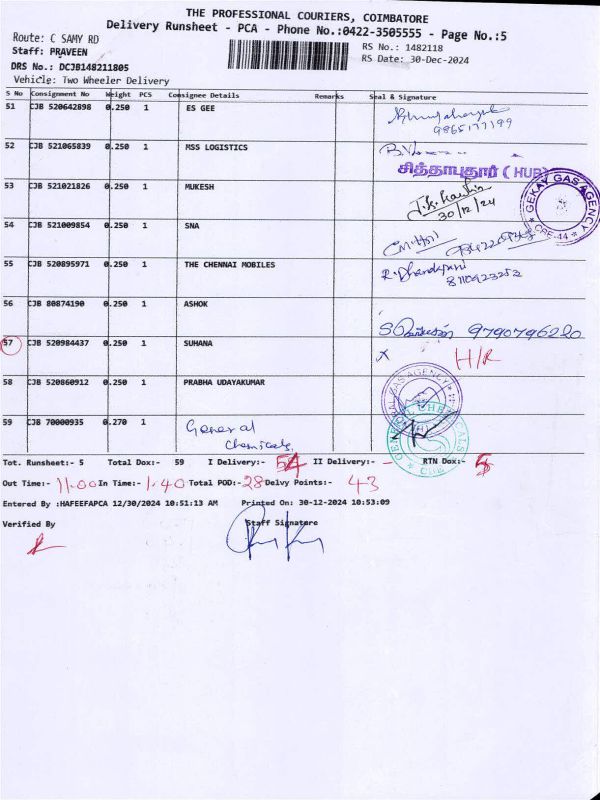 THE PROFESSIONAL COURIERS, COIMBATORE
Delivery Runsheet - PCA - Phone No.:0422-3505555 - Page No.:5
Route: C SAMY RD
RS No.: 1482118
Staff: PRAVEEN
RS Date: 30-Dec-2024
DRS No.: DCJB148211805
Vehicle: Two Wheeler Delivery
S No Consignment No Weight PCS Consignee Details Remarks Seal & Signature
51 CJB 520642898 0.250 1 ES GEE
9865177199
52 CJB 521065839 0.250 1 MSS LOGISTICS
சித்தாபுதூர் (HUB)
53 CJB 521021826 0.250 1 MUKESH
30/12/24
GEKAY GAS AGENCY
CBE-44
54 CJB 521009854 0.250 1 SNA
55 CJB 520895971 0.250 1 THE CHENNAI MOBILES
R. Dhandapani
8110923252
56 CJB 80874190 0.250 1 ASHOK
9790796220
57 CJB 520984437 0.250 1 SUHANA
x H/R
58 CJB 520860912 0.250 1 PRABHA UDAYAKUMAR
59 CJB 70000935 0.270 1 General Chemicals,
Tot. Runsheet:- 5 Total Dox:- 59 I Delivery:- 54 II Delivery:- - RTN Dox:- 5
Out Time:- 11.00 In Time:- 1.40 Total POD:- 28 Delvy Points:- 43
Entered By :HAFEEFAPCA 12/30/2024 10:51:13 AM Printed On: 30-12-2024 10:53:09
Verified By Staff Signatore